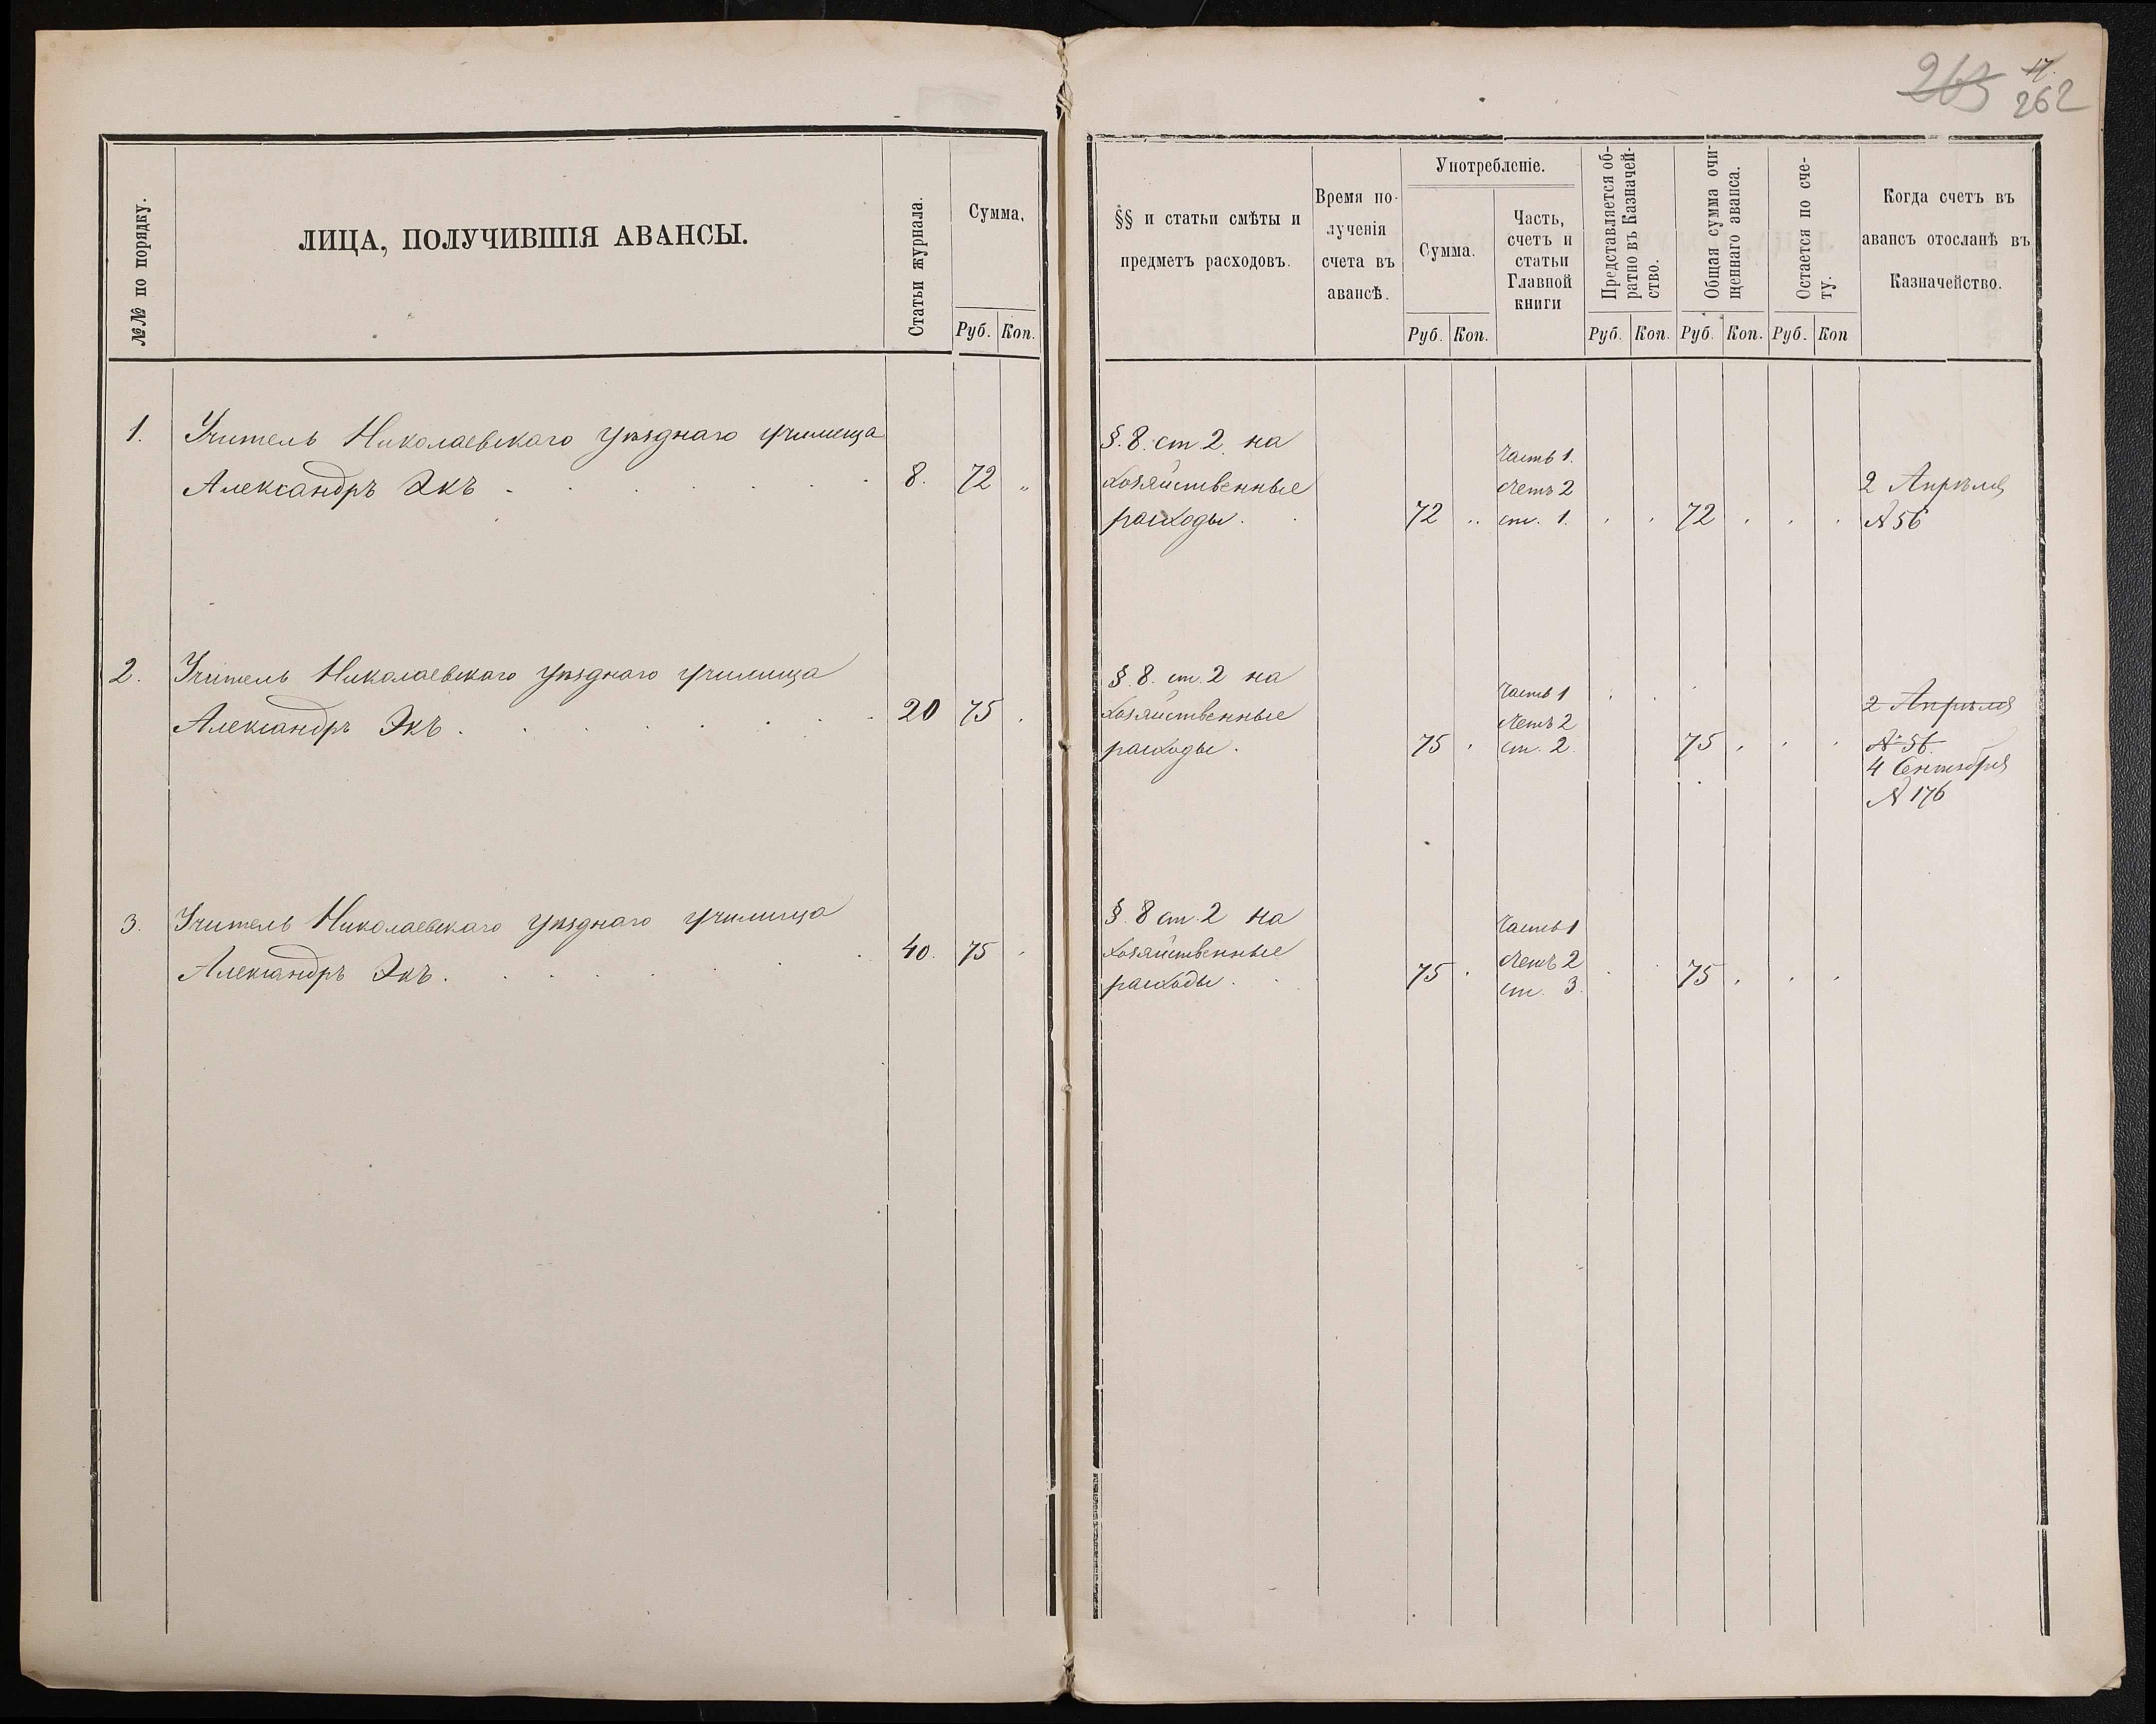 263 17.
262
№№ по порядку.
ЛИЦА, ПОЛУЧИВШІЯ АВАНСЫ.
Статьи журнала.
Сумма,
Руб. Коп.
1. Учитель Николаевскаго уѣзднаго училища
Александръ Экъ . . . . . . . 8. 72 „
2. Учитель Николаевскаго уѣзднаго училища
Александръ Экъ . . . . . . . 20 75 .
3. Учитель Николаевскаго уѣзднаго училища
Александръ Экъ . . . . . . . 40. 75 .
§§ и статьи смѣты и
предметъ расходовъ.
Время по-
лученія
счета въ
авансѣ.
Употребленіе.
Сумма.
Часть,
счетъ и
статьи
Главной
книги
Представляется об-
ратно въ Казначей-
ство.
Общая сумма очи-
щеннаго аванса.
Остается по сче-
ту.
Когда счетъ въ
авансъ отосланъ въ
Казначейство.
Руб. Коп. Руб. Коп. Руб. Коп. Руб. Коп
§. 8. ст 2. на
хозяйственные
расходы. .
72 „
Часть 1.
Счетъ 2
ст. 1.
. . 72 . . .
2 Апрѣля
№ 56
§. 8. ст. 2 на
хозяйственные
расходы.
75 .
Часть 1
Счетъ 2
ст. 2.
75 . . .
2 Апрѣля
№ 56.
4 Сентября
№ 176
§. 8 ст. 2 на
хозяйственные
расходы. .
75 .
Часть 1
Счетъ 2
ст. 3.
. . 75 . . .